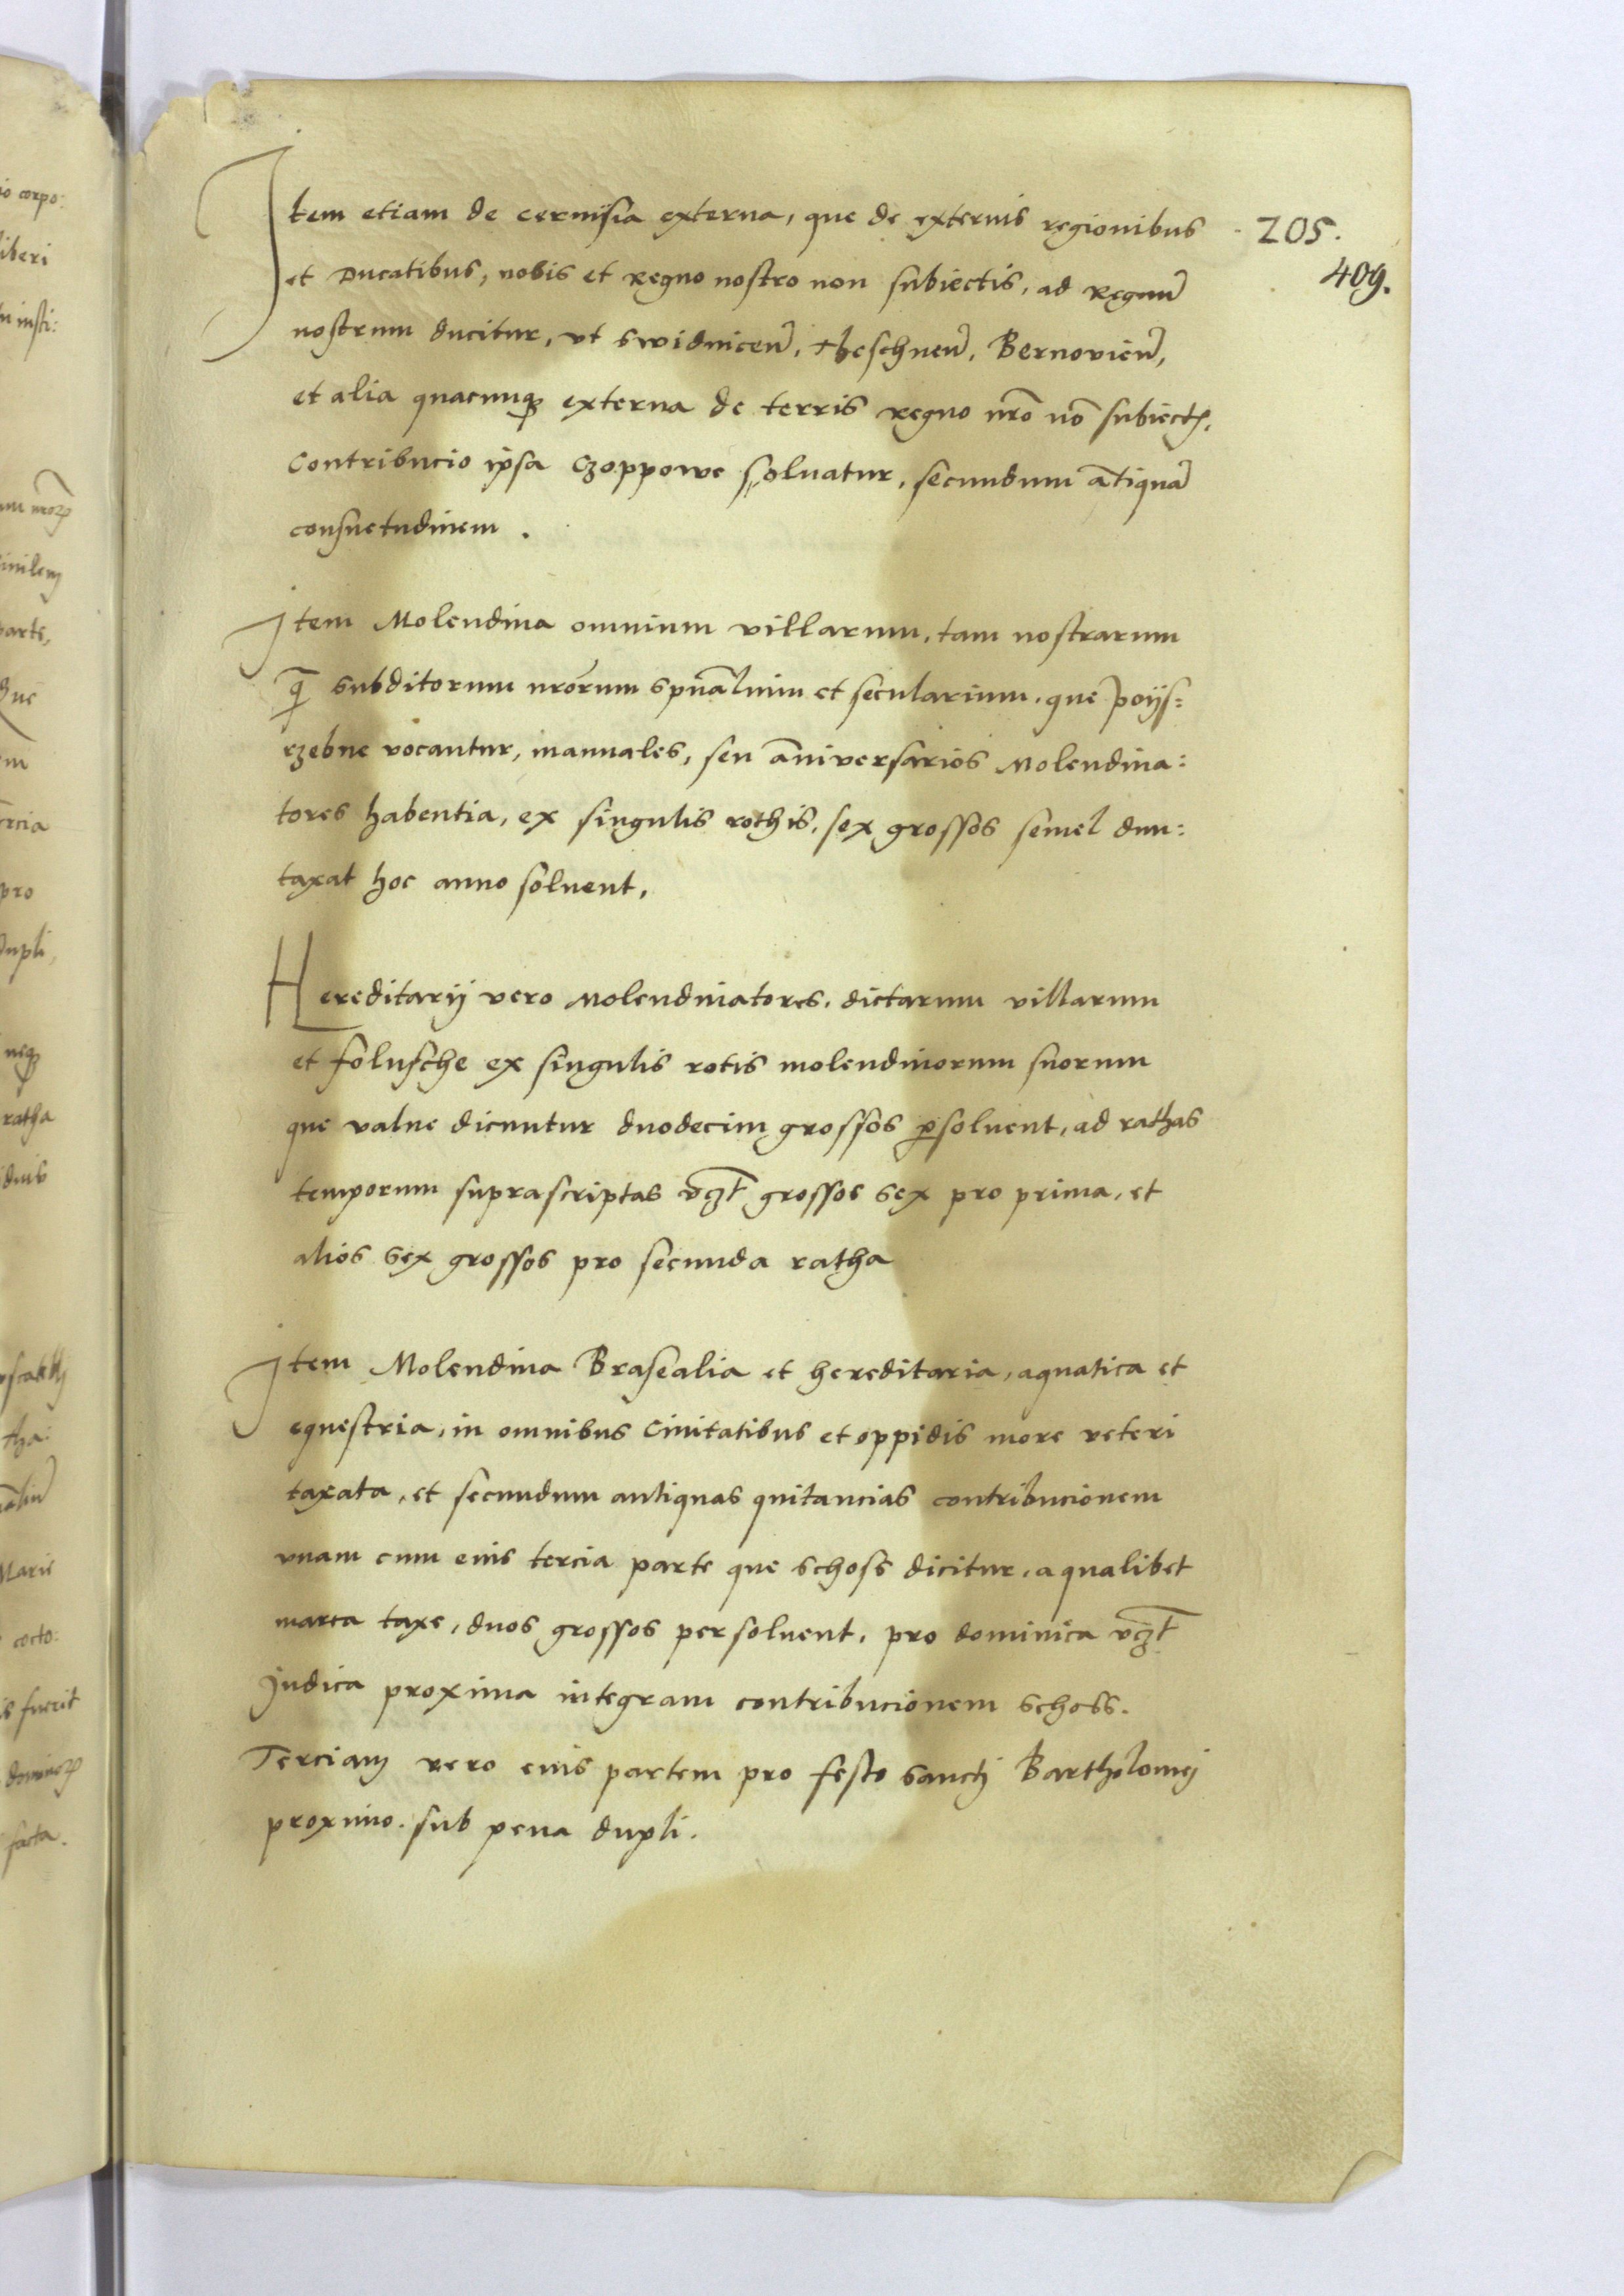 Item etiam de cervisia externa, que de externis regionibus
205.
409.
et Ducatibus, nobis et Regno nostro non subiectis, ad Regnu̅
nostrum ducitur, vt swidnicen̅, theschnen̅, Bernovien̅,
et alia quacunqꝫ externa de terris regno nr̅o no̅ subiectꝭ,
Contribucio ipsa Czoppowe solvatur, secundum a̅tiqua̅
consuetudinem.
Item Molendina omnium villarum, tam nostrarum
qꝫ̅ subditorum nr̅orum spu̅alium et secularium, que poijs=
rzebne vocantur, manuales, seu a̅niversarios Molendina:
tores habentia, ex singulis rothis, sex grossos semel dun:
taxat hoc anno solvent,
Hereditarij vero Molendinatores, dictarum villarum
et folusche ex singulis rotis molendinorum suorum
que valne dicuntur duodecim grossos ꝑsoluent, ad rathas
temporum suprascriptas vcꝫt grossos sex pro prima, et
alios sex grossos pro secunda ratha
Item Molendina Brasealia et hereditaria, aquatica et
equestria, in omnibus Civitatibus et oppidis more veteri
taxata, et secundum antiquas quitancias contribucionem
vnam cum eius tercia parte que schoss dicitur, a qualibet
marca taxe, duos grossos persolvent, pro dominica vcꝫt
Judica proxima integram contribucionem schoss.
Terciam vero eius partem pro festo sancti Bartholomej
proximo. sub pena dupli.